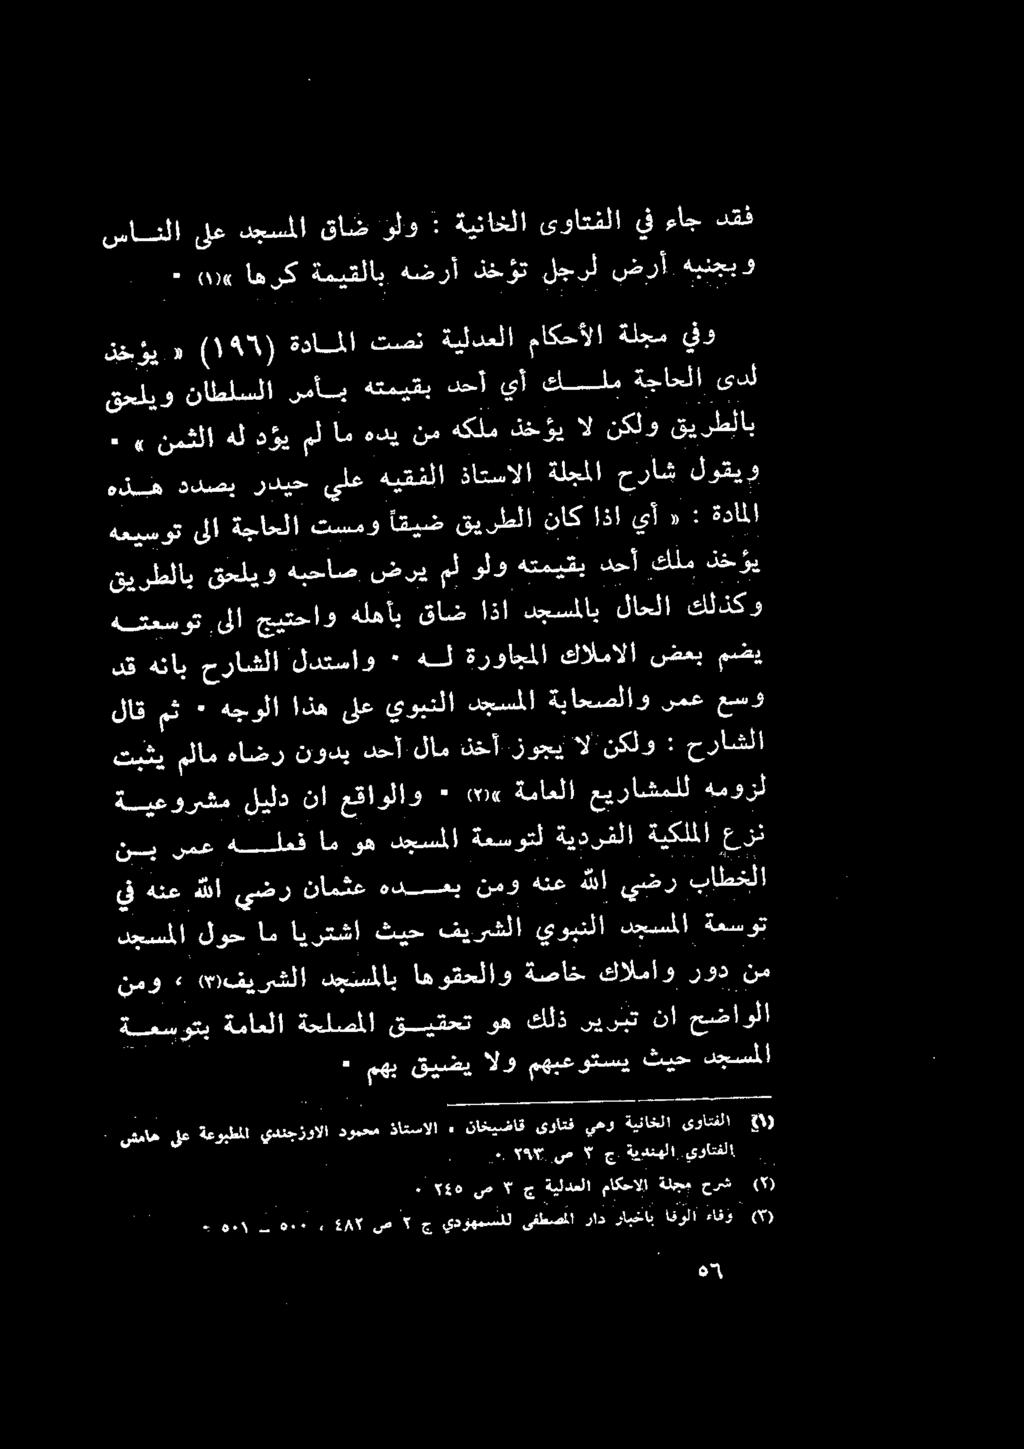 فقد جاء في الفتاوى الخانية : ولو ضاق المسجد على النـاس
وبجنبه أرض لرجل تؤخذ أرضه بالقيمة كرها »(١) ٠
وفي مجلة الأحكام العدلية نصت المـادة (١٩٦) « يؤخذ
لدى الحاجة ملـك أي أحد بقيمته بـأمر السلطان ويلحق
بالطريق ولكن لا يؤخذ ملكه من يده ما لم يؤد له الثمن » ٠
ويقول شارح المجلة الاستاذ الفقيه علي حيدر بصدد هـذه
المادة : « أي اذا كان الطريق ضيقاً ومست الحاجة الى توسيعه
يؤخذ ملك أحد بقيمته ولو لم يرض صاحبه ويلحق بالطريق
وكذلك الحال بالمسجد اذا ضاق بأهله واحتيج الى توسعتـه
يضم بعض الاملاك المجاورة لـه ٠ واستدل الشارح بانه قد
وسع عمر والصحابة المسجد النبوي على هذا الوجه ٠ ثم قال
الشارح : ولكن لا يجوز أخذ مال أحد بدون رضاه مالم يثبت
لزومه للمشاريع العامة »(٢) ٠ والواقع ان دليل مشروعيـة
نزع الملكية الفردية لتوسعة المسجد هو ما فعلـه عمر بـن
الخطاب رضي الله عنه ومن بعـده عثمان رضي الله عنه في
توسعة المسجد النبوي الشريف حيث اشتريا ما حول المسجد
من دور واملاك خاصة والحقوها بالمسجد الشريف(٣) ، ومن
الواضح ان تبرير ذلك هو تحقيـق المصلحة العامة بتوسعـة
المسجد حيث يستوعبهم ولا يضيق بهم ٠
(١) الفتاوى الخانية وهي فتاوى قاضيخان ٠ الاستاذ محمود الاوزجندي المطبوعة على هامش
الفتاوي الهندية ج ٣ ص ٢٩٣ ٠
(٢) شرح مجلة الاحكام العدلية ج ٣ ص ٢٤٥ ٠
(٣) وفاء الوفا باخبار دار المصطفى للسمهودي ج ٢ ص ٤٨٢ ، ٥٠٠ ــ ٥٠١ ٠
٥٦